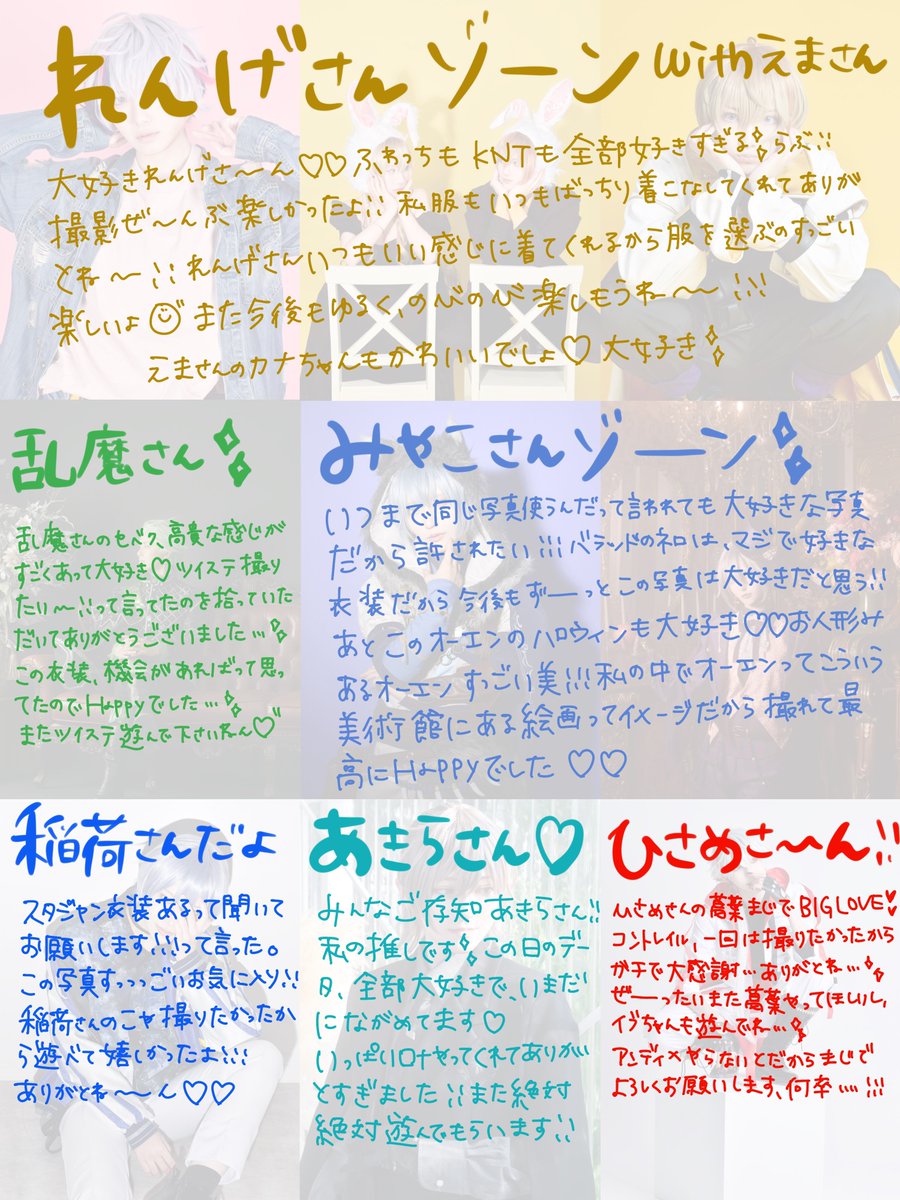 れんげさんゾーン withえまさん
大好きれんげさ〜ん♡♡ふわっちもKNTも全部好きすぎる らぶ!!
撮影ぜ〜んぶ楽しかったよ!!私服もいつもばっちり着こなしてくれてありが
とね〜!!れんげさんいつもいい感じに着てくれるから服を選ぶのすっごい
楽しいよ また今後もゆるく、のびのび楽しもうね〜!!!
えまさんのカナちゃんもかわいいでしょ♡大好き
乱魔さん
乱魔さんのセベク、高貴な感じが
すごくあって大好き♡ツイステ撮り
たい〜!!って言ってたのを拾っていた
だいてありがとうございました…
この衣装、機会があればって思っ
てたのでHappyでした…
またツイステ遊んで下さいねん♡
みやこさんゾーン
いつまで同じ写真使うんだって言われても大好きな写真
だから許されたい!!!バランドのネロは、マジで好きな
衣装だから今後もずーっとこの写真は大好きだと思う!!
あとこのオーエンのハロウィンも大好き♡♡お人形み
あるオーエンすっごい美!!!私の中でオーエンってこういう
美術館にある絵画ってイメージだから撮れて最
高にHappyでした♡♡
稲荷さんだよ
スタジャン衣装あるって聞いて
お願いします!!!って言った。
この写真すっっっごいお気に入り!!
稲荷さんの撮りたかったか
ら遊べて嬉しかったよ!!!
ありがとね〜ん♡♡
あきらさん♡
みんなご存知あきらさん!!
私の推しです この日のデー
タ、全部大好きで、いまだ
にながめてます♡
いっぱいロナやってくれてありがい
とすぎました!!また絶対
絶対遊んでもらいます!!
ひさめさ〜ん!!
ひさめさんの葛葉まじでBIGLOVE
コントレイル、一回は撮りたかったから
ガチで大感謝…ありがとね…
ぜーったいまた葛葉やってほしいし、
イブちゃんも遊んでね…
アンディ×やらないとだからまじで
よろしくお願いします、何卒……!!!